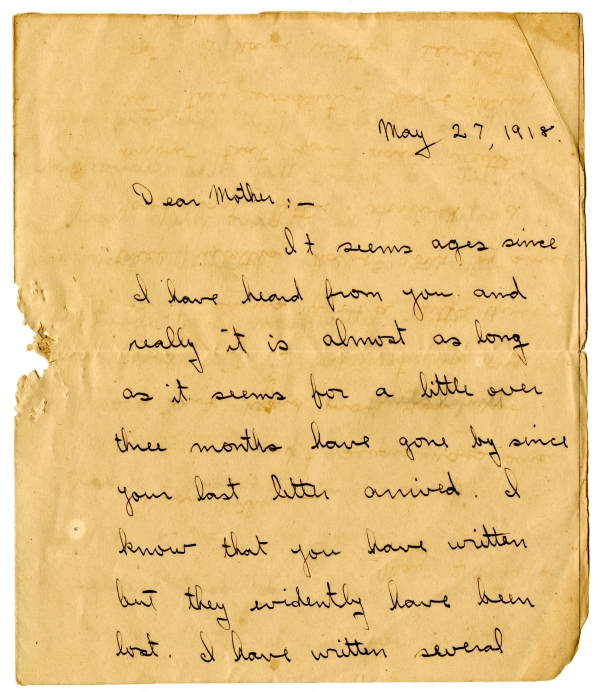 May 27, 1918.
Dear Mother:—
It seems ages since
I have heard from you and
really it is almost as long
as it seems for a little over
three months have gone by since
your last letter arrived. I
know that you have written
but they evidently have been
lost. I have written several